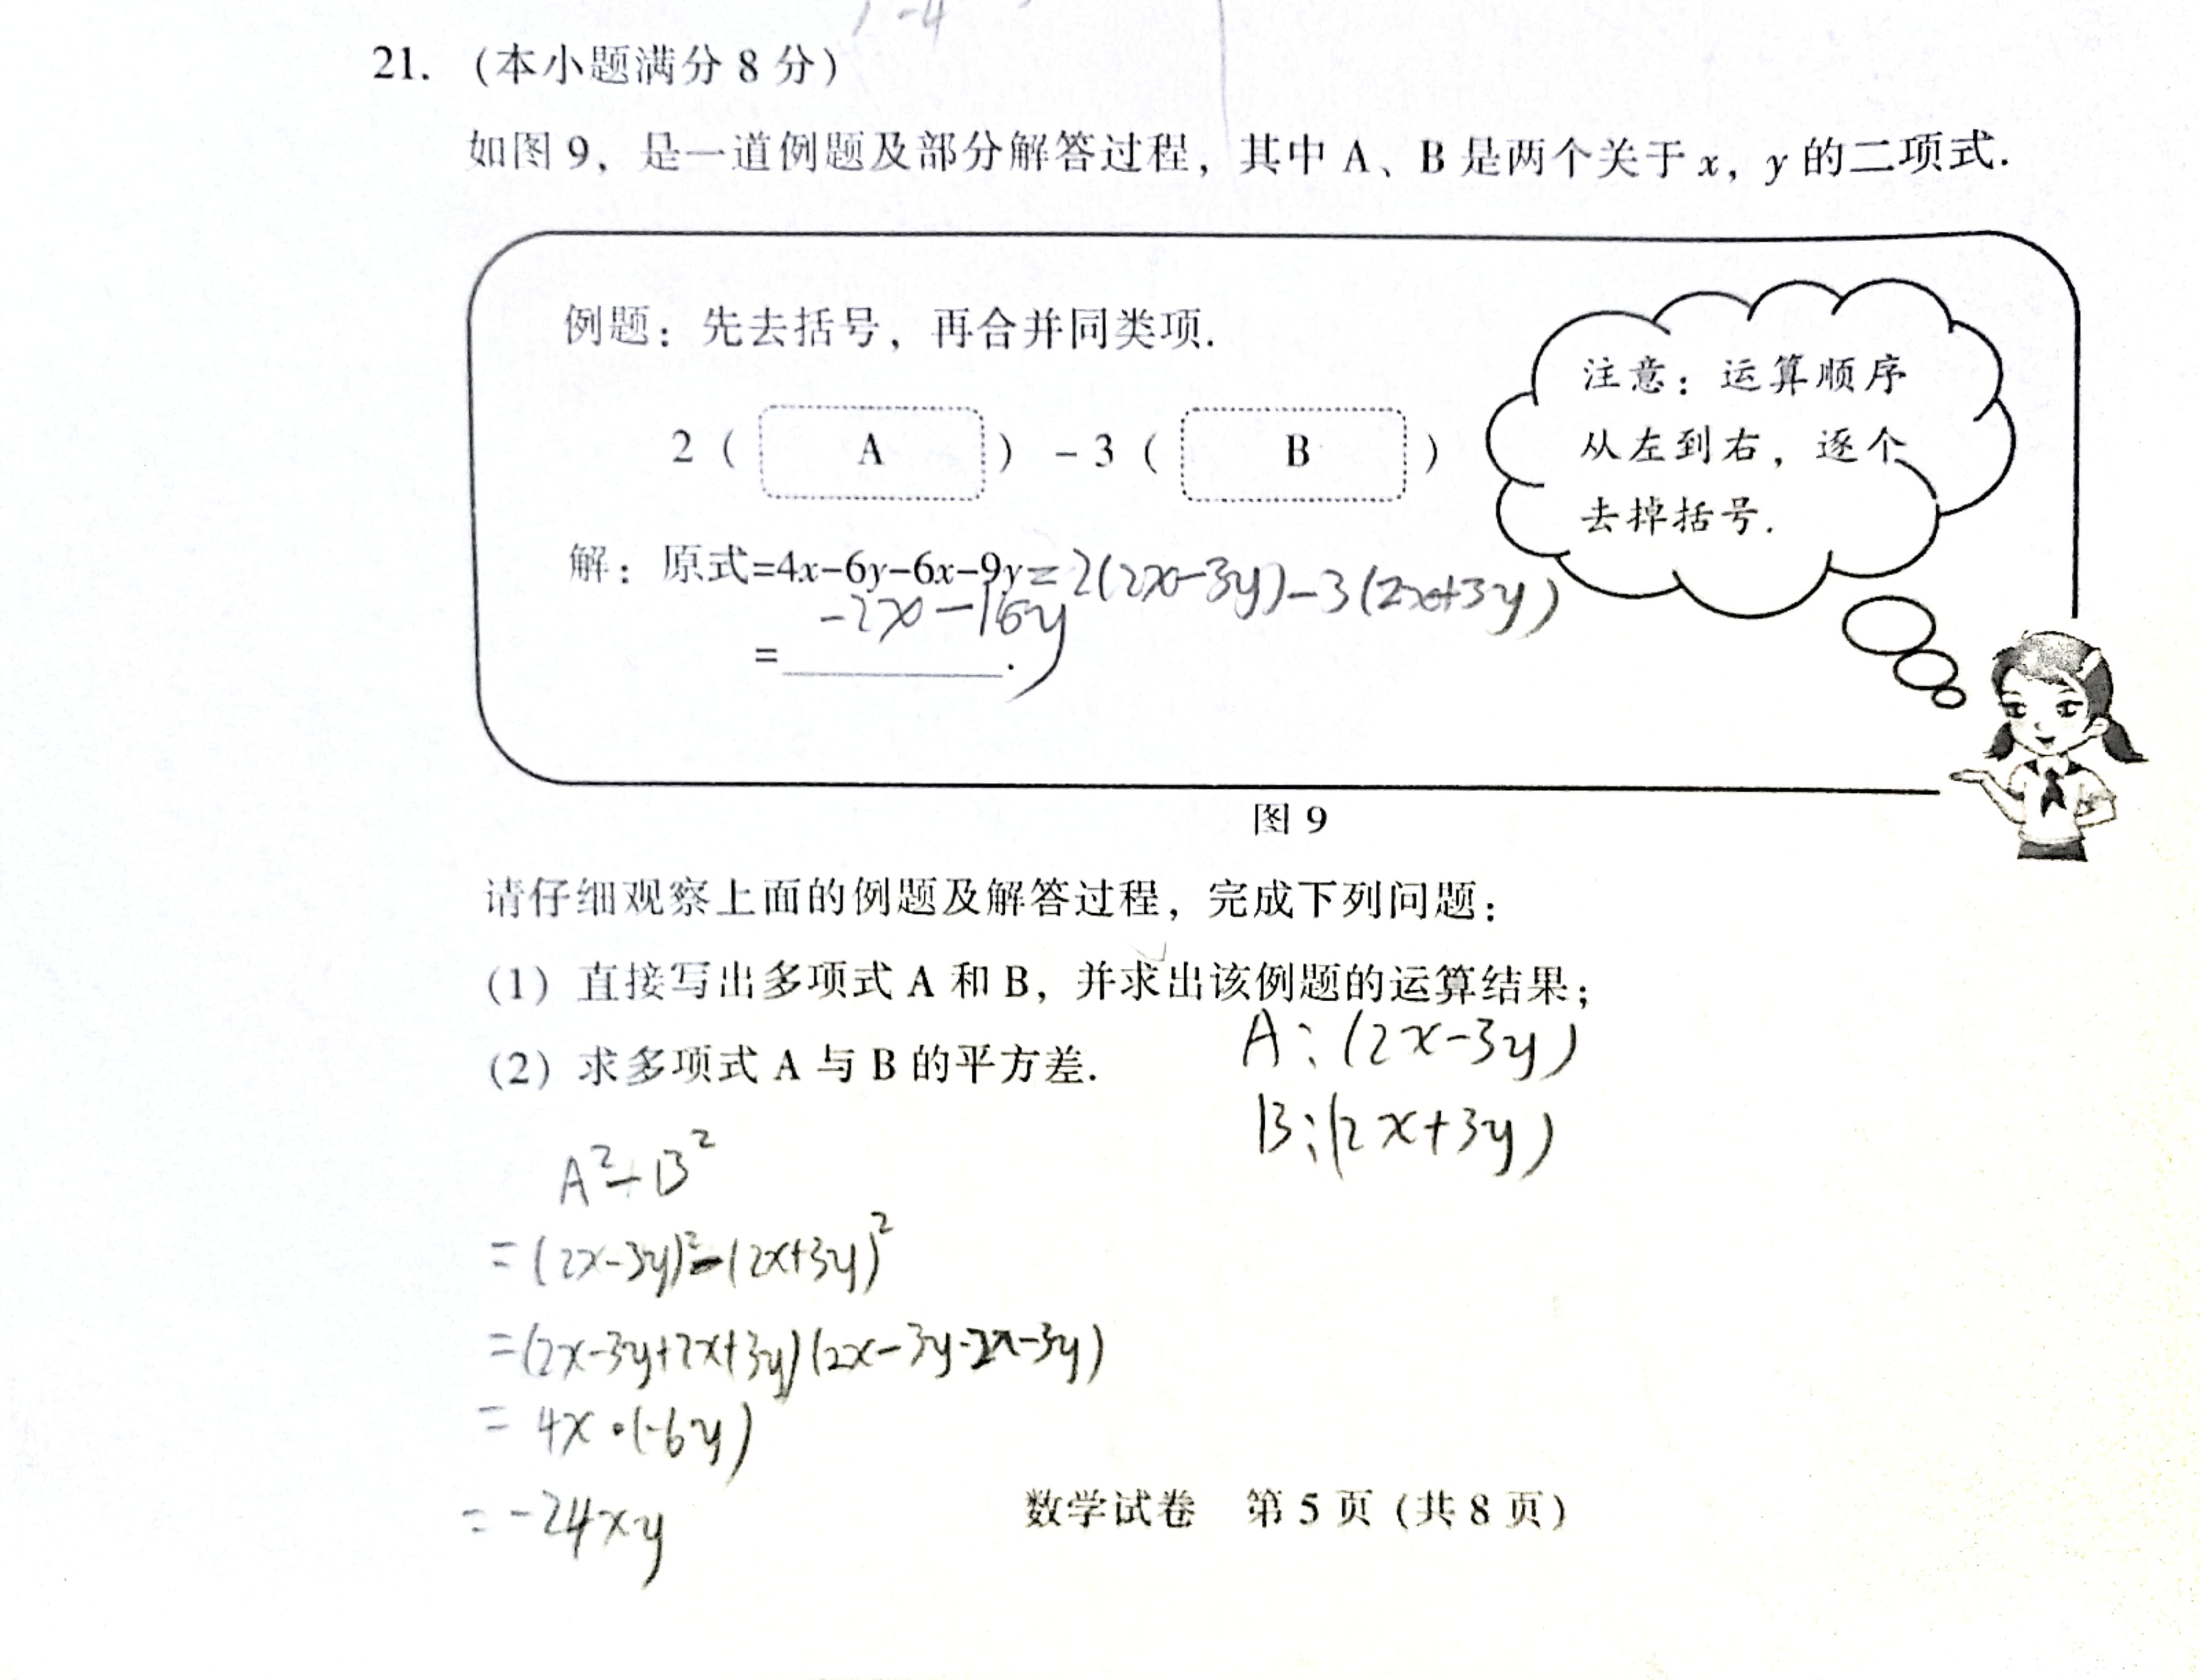 -4
21. (本小题满分 8 分)
如图 9, 是一道例题及部分解答过程, 其中 A、B 是两个关于 x, y 的二项式.
例题: 先去括号, 再合并同类项.
2 ( A ) - 3 ( B )
注意: 运算顺序
从左到右, 逐个
去掉括号.
解: 原式=4x-6y-6x-9y = 2(2x-3y)-3(2x+3y)
= -2x-16y .
图 9
请仔细观察上面的例题及解答过程, 完成下列问题:
(1) 直接写出多项式 A 和 B, 并求出该例题的运算结果;
A:(2x-3y)
(2) 求多项式 A 与 B 的平方差.
B:(2x+3y)
A²-B²
=(2x-3y)²-(2x+3y)²
=(2x-3y+2x+3y)(2x-3y-2x-3y)
= 4x·(-6y)
= -24xy
数学试卷 第 5 页 (共 8 页)